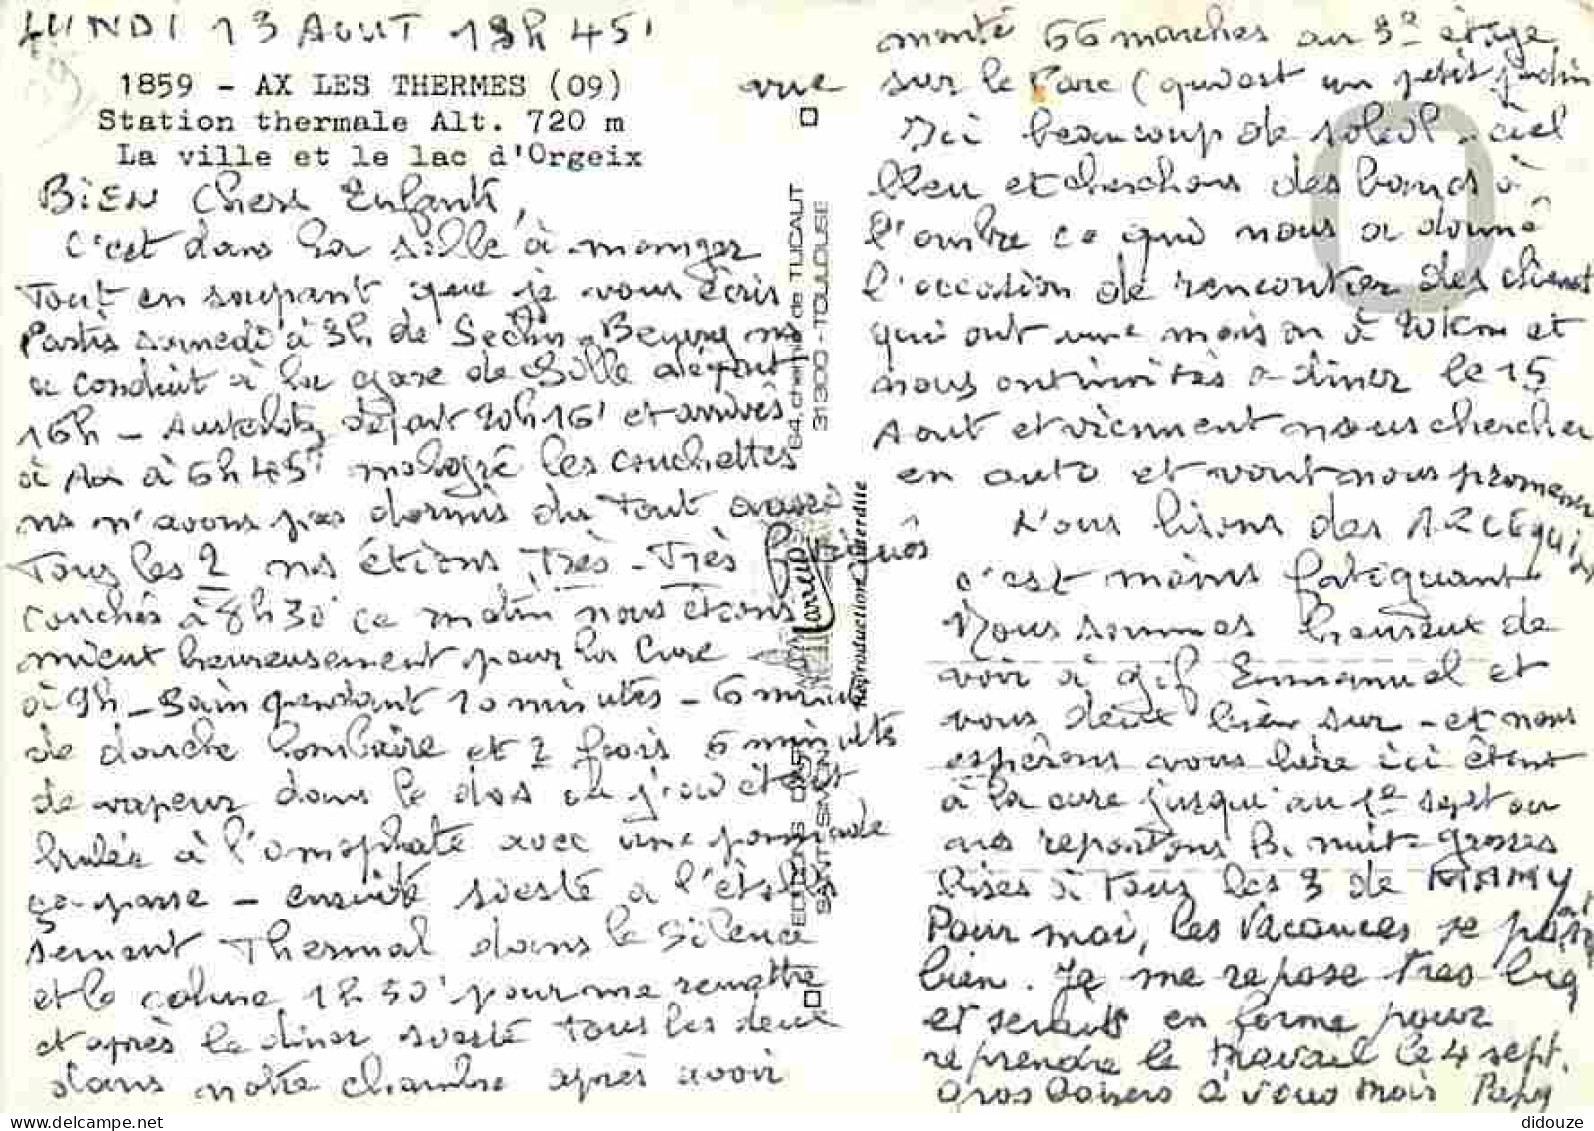 LUNDI 13 AOUT 19h 45'
1859 - AX LES THERMES (09)
Station thermale Alt. 720 m
La ville et le lac d'Orgeix
BiEN Chers Enfants,
C'est dans la salle à manger
Tout en soupant que je vous écris
Partis samedi à 3h de Seclin
a conduit à la gare de Lille départ
16h - Austerlitz départ 20h16' et arrivés
à Ax à 6h45' malgré les couchettes
ns n'avons pas dormis du Tout aussi
Tous les 2 ns étions Très - Très fatigués
couchés à 8h30' ce matin nous étions
mieux heureusement pour la Cure -
à 9h - Bain pendant 10 minutes - 6 minutes
de douche lombaire et 2 fois 6 minutes
de vapeur dans le dos où j'ai été
brulée à l'omoplate avec une pommade
ça passe - ensuite sieste à l'établis
sement Thermal dans le Silence
et le calme 1h30' pour me remettre
et après le diner sieste tous les deux
dans notre chambre après avoir
monté 66 marches au 3e étage
vue sur le Parc (qui est un petit jardin
Ici beaucoup de soleil - ciel
bleu et cherchons des bancs à
l'ombre ce qui nous a donné
l'occasion de rencontrer des clients
qui ont une maison à 20km et
nous ont invités à diner le 15
Aout et viennent nous chercher
en auto et vont nous promener
Nous lisons des ARLEQUIN
c'est moins fatiguant
Nous sommes heureux de
voir à gif Emmanuel et
vous deux bien sur - et nous
espérons vous lire ici étant
à la cure jusqu'au 1e sept ou
ns repartons B. nuit - grosses
Bises à Tous les 3 de MAMY
Pour moi, les vacances se passent
bien. Je me repose très bien
et serais en forme pour
reprendre le travail le 4 sept.
Gros baisers à vous trois Papy
EDITIONS
64, chemin de TUCAUT
31300 - TOULOUSE
Reproduction interdite
didouze